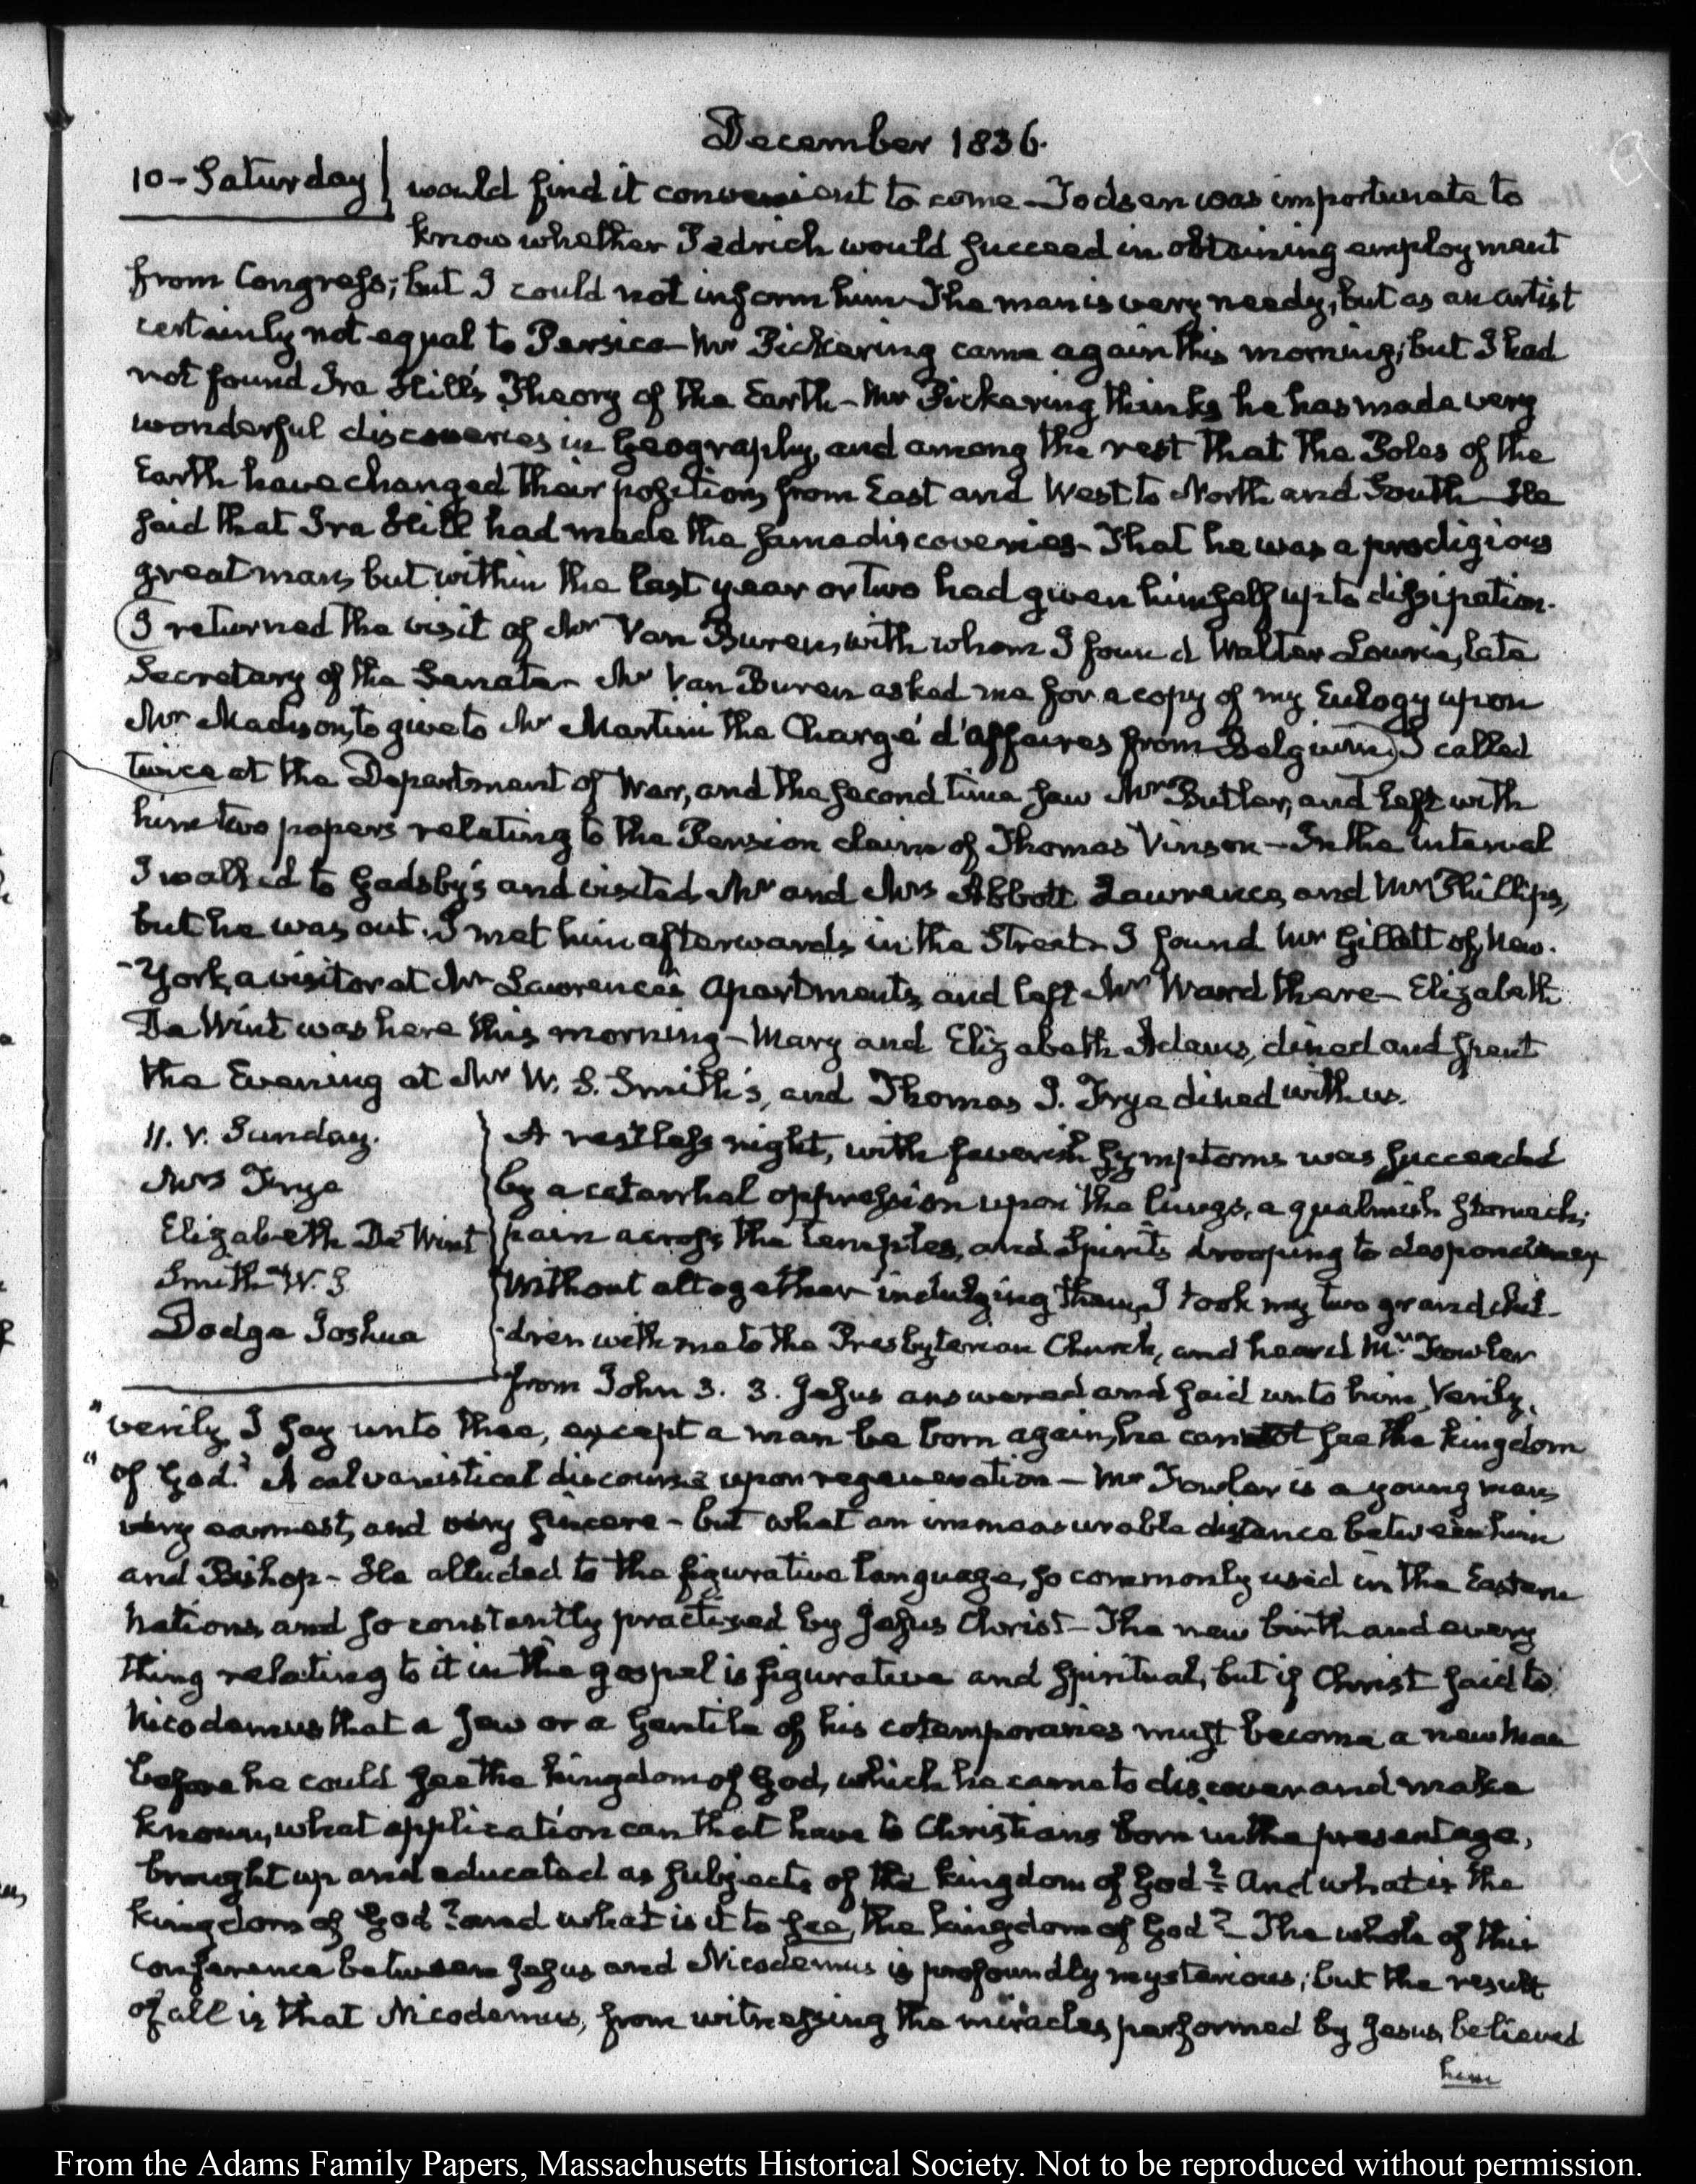 December 1836.
10 - Saturday } would find it convenient to come - Todsen was importunate to
know whether Pedrick would succeed in obtaining employment
from Congress; but I could not inform him - The man is very needy, but as an artist
certainly not equal to Persico - Mr Pickering came again this morning; but I had
not found Ira Hill's Theory of the Earth - Mr Pickering thinks he has made very
wonderful discoveries in Geography, and among the rest that the Poles of the
Earth have changed their position, from East and West to North and South - He
said that Ira Hill had made the same discoveries - That he was a prodigious
great man, but within the last year or two had given himself up to dissipation.
I returned the visit of Mr Van Buren, with whom I found Walter Lowrie, late
Secretary of the Senate - Mr Van Buren asked me for a copy of my Eulogy upon
Mr Madison, to give to Mr Martini the Chargé d'affaires from Belgium) I called
twice at the Department of War, and the second time saw Mr Butler, and left with
him two papers relating to the Pension claim of Thomas Vinson - In the interval
I walked to Gadsby's and visited Mr and Mrs Abbott Lawrence, and Mr Phillips,
but he was out. I met him afterwards in the Street - I found Mr Gillett of New-
-York, a visitor at Mr Lawrence's apartments, and left Mr Ward there - Elizabeth
De Wint was here this morning - Mary and Elizabeth Adams, dined and spent
the Evening at Mr W. S. Smith's, and Thomas J. Frye dined with us.
11. V. Sunday. } A restless night, with feverish symptoms was succeeded
Mrs Frye } by a catarrhal oppression upon the lungs, a qualmish stomach,
Elizabeth De Wint } pain across the temples, and Spirits drooping to despondency
Smith W. S } Without altogether indulging them, I took my two grand chil-
Dodge Joshua } -dren with me to the Presbyterian Church, and heard Mr Fowler
from John 3. 3. Jesus answered and said unto him, Verily,
"verily I say unto thee, except a man be born again, he cannot see the kingdom
"of God." A calvanistical discourse upon regeneration - Mr Fowler is a young man,
very earnest, and very sincere - but what an immeasurable distance between him
and Bishop - He alluded to the figurative language, so commonly used in the Eastern
Nations, and so constantly practised by Jesus Christ - The new birth and every
thing relating to it in the gospel is figurative and spiritual, but if Christ said to
Nicodemus that a Jew or a Gentile of his cotemporaries must become a new man
before he could see the kingdom of God, which he came to discover and make
known, what application can that have to Christians born in the present age,
brought up and educated as subjects of the kingdom of God? - And what is the
kingdom of God? and what is it to see, the kingdom of God? - The whole of this
conference between Jesus and Nicodemus is profoundly mysterious; but the result
of all is that Nicodemus, from witnessing the miracles performed by Jesus, believed
him
From the Adams Family Papers, Massachusetts Historical Society. Not to be reproduced without permission.